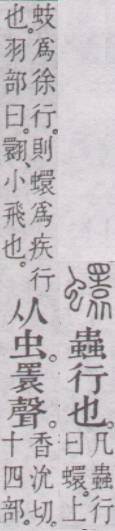 蟲行也。凡蟲行
曰蠉。上
蚑爲徐行。則蠉爲疾行
也。羽部曰。翾、小飛也。
从虫。瞏聲。香沇切。
十四部。